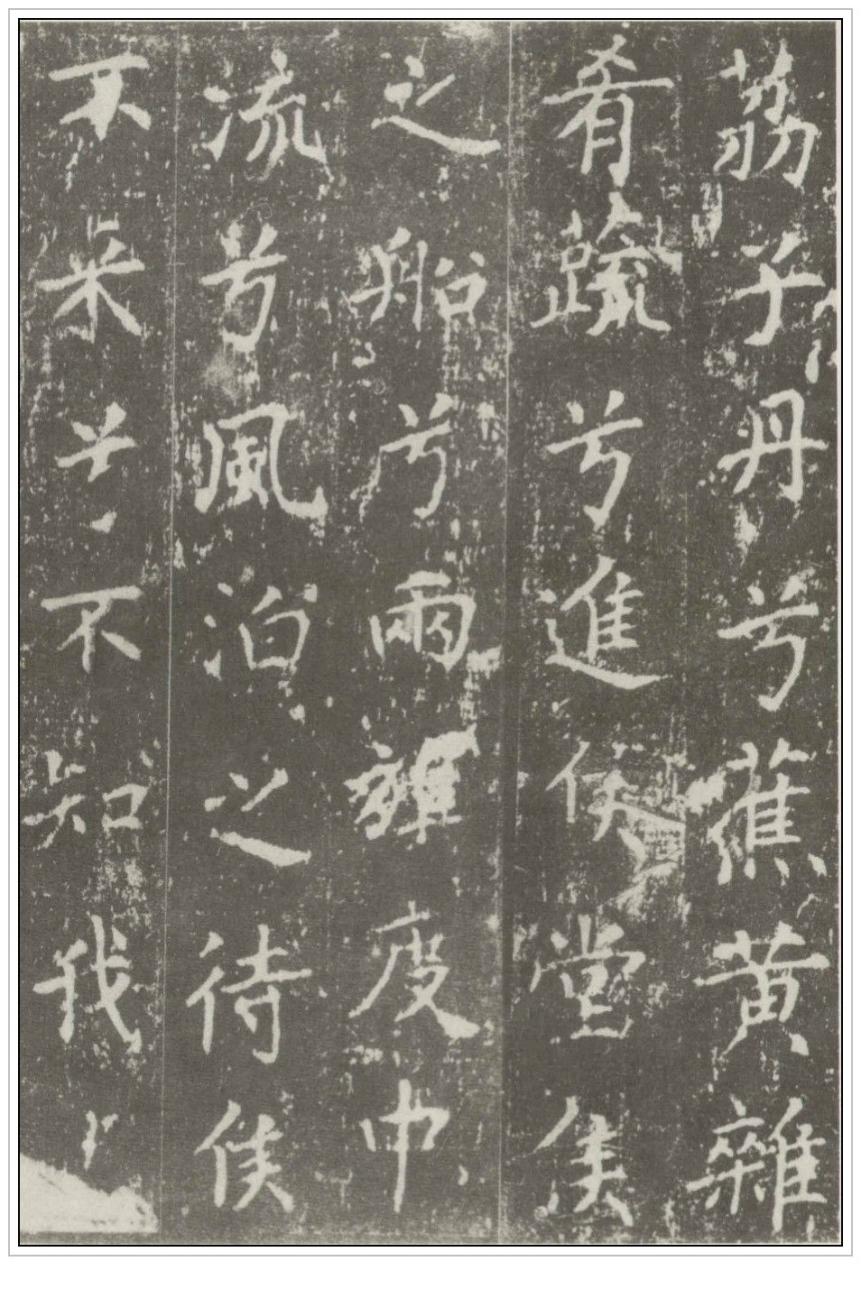 荔子丹兮蕉黄雜
肴蔬兮進侯堂侯
之船兮兩旗度中
流兮風泊之待侯
不来兮不知我